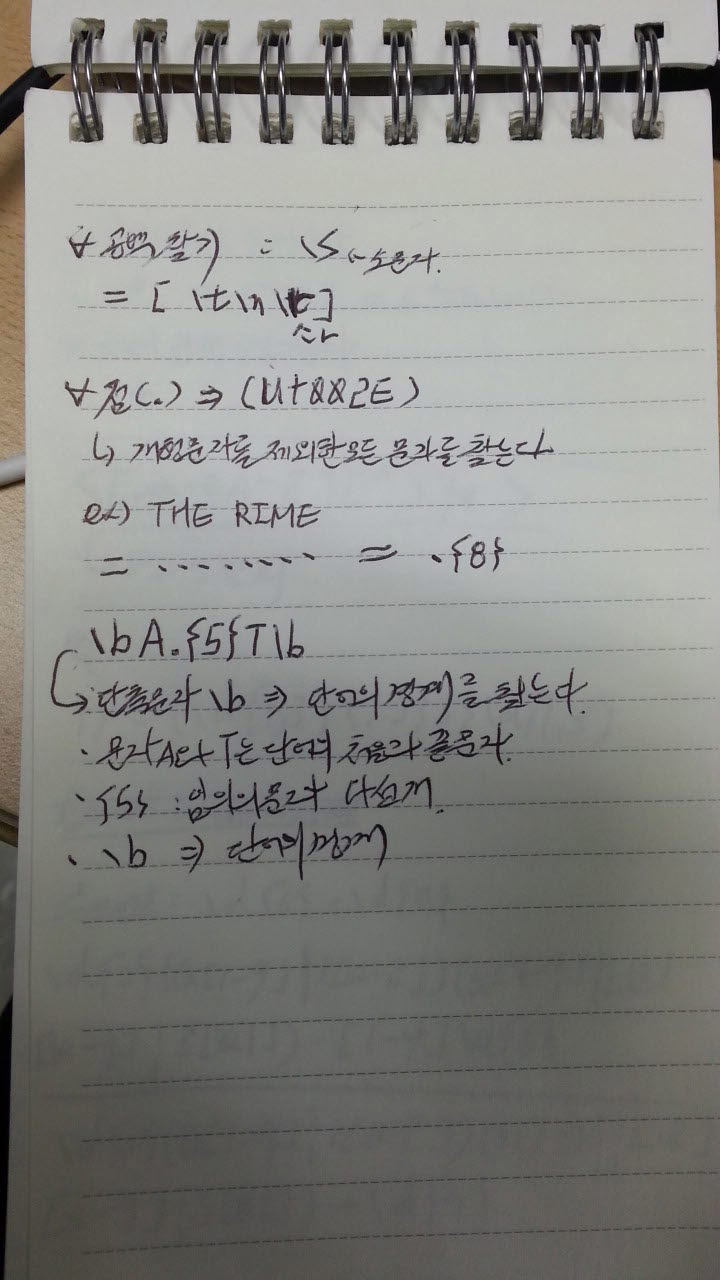 ∀ 공백 찾기 : \s ← 소문자.
= [ \t\n\r]
∀ 점(.) ⇒ (U+002E)
↳ 개행문자를 제외한 모든 문자를 찾는다
ex) THE RIME
= ........ = .{8}
\bA.{5}T\b
→ 단축문자 \b ⇒ 단어의 경계를 찾는다.
· 문자 A와 T는 단어의 처음과 끝문자.
· {5} : 임의의 문자 다섯개.
· \b ⇒ 단어의 경계